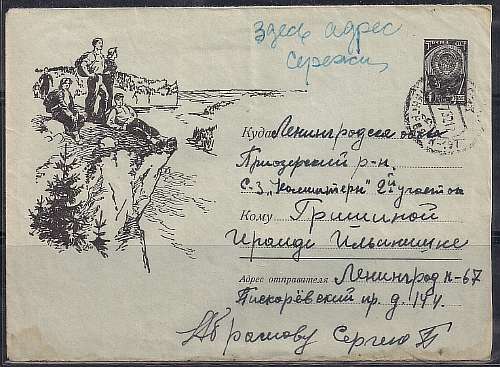 Здесь адрес
Сережи
Куда Ленинградская область
Приозерский р-н.
С-з „Коминтерн" 2й участок
Кому Гришиной
Ираиде Ильиничне
Адрес отправителя Ленинград К-67
Пискарёвский пр. д. 144.
Абрамову Сергею